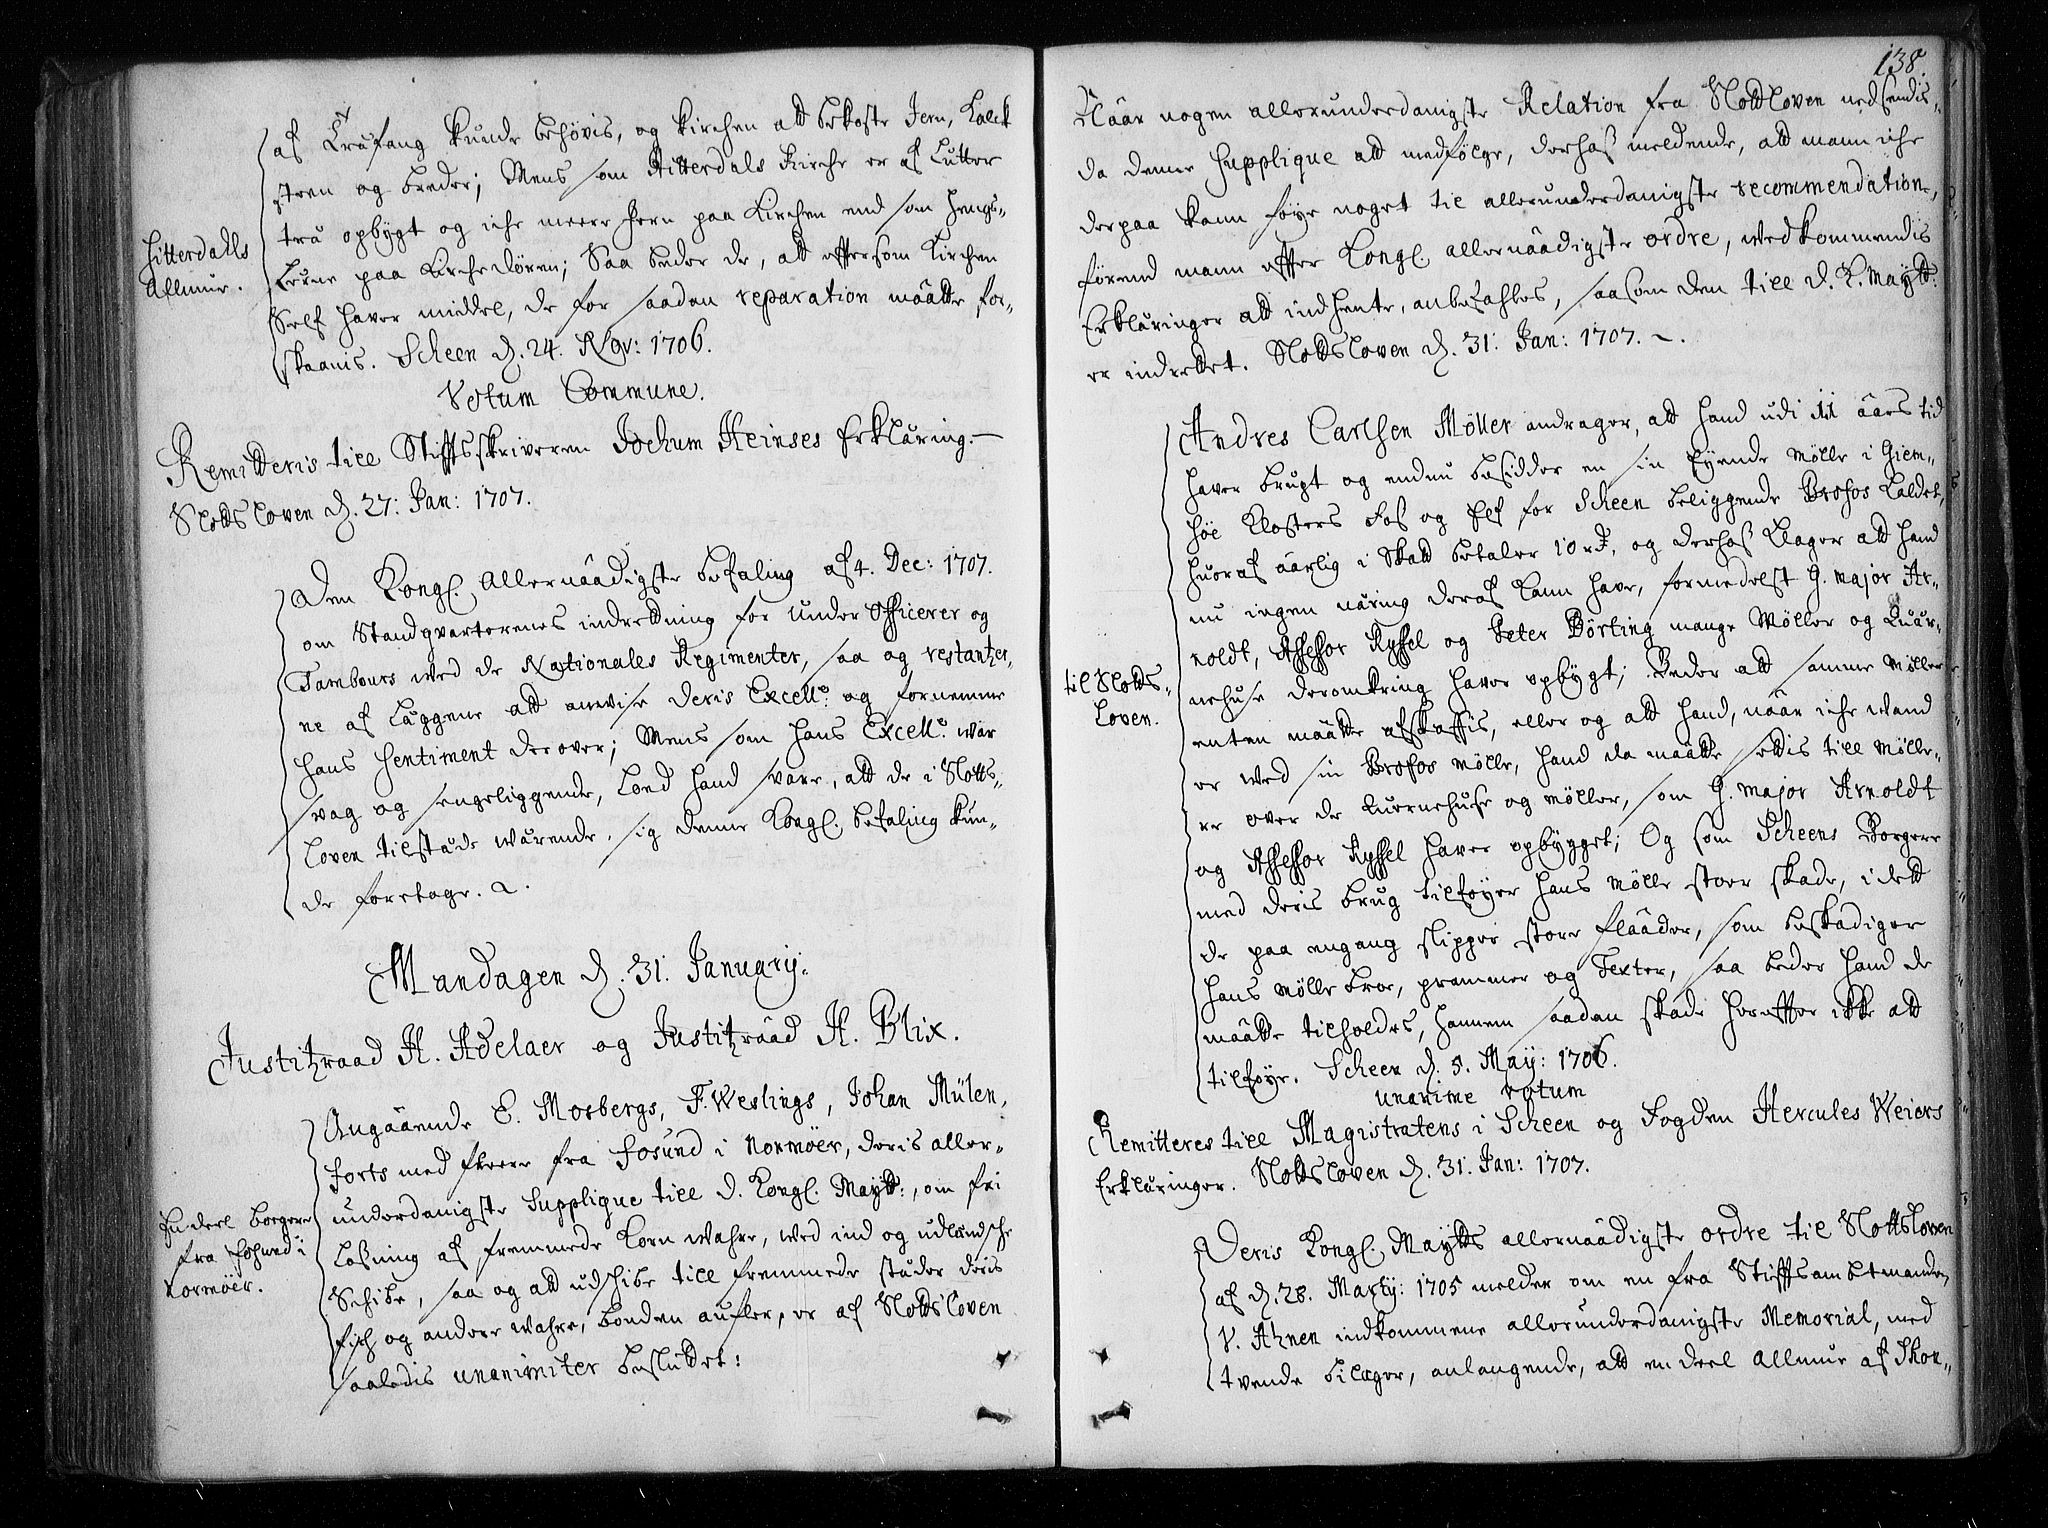 af Træfang kunde behøvis, og kirchen att bekoste Jern, Kalck
steen og breder; Mens som Hitterdals Kirche er af Lutter
Hitterdalls
Allmue.
træ opbygt og iche meere Jern paa Kirchen end som hengs-
lerne paa Kirchedøren; Saa beder de, att efftersom Kirchen
Self haver middel, de for saadan reparation måtte for-
skaanis. Scheen d. 24. Nov: 1706.
Votum Commune.
Remitteris till Stifftsskriveren Jochum Heinses Erklæring.
Slottsloven d. 27: Jan: 1707.
Den Kongl. Allernåadigste befaling af 4. Dec: 1707.
om Standqvarterenes indrettning for Under Officerer og
Tambours wed de Nationales Regimenter, saa og restantzer-
ne af Læggene att anvise deris Excell:e og fornemme
hans Sentiment derover; Mens som hans Excell:e war
svag og sengeliggende, loed hand svare, att de i Slotts-
loven tilstæde wærende, sig denne Kongl. befaling kun-
de foretage.
Mandagen d. 31. January.
Justitzraad H. Adelaer og Justitzråad H. Blix.
Angåaende E. Mosbergs, F. Weslings, Johan Mülen-
forts med fleere fra Fosund i Normøer, deris aller-
underdanigste Supplique till d. Kongl. Maytt:, om fri
En deel borgere
fra Fosund i
Normøer.
Losning af fremmede Korn wahre, wed ind og udlændsche
Schibe, saa og att udschibe till fremmede stæder deris
fisch og andere wahre, bonden aufler, er af Slottsloven
saaledis unanimiter besluttet:
138.
Nåar nogen allerunderdanigste Relation fra Slottsloven nedsendis,
da denne Supplique att medfølge, derhos meldende, att mann iche
derpaa kann føye noget til allerunderdanigste recommendation,
førend mann effter Kongl. allernåadigste ordre, wedkommendis
Erklæringer att indhente, anbefahles, saasom den till d. K. Maytt:
er indrettet. Slottsloven d. 31. Jan: 1707.
Andres Carlsen Møller andrager, att hand udi 11 åars tid
haver brugt og endnu besidder en sin Eyende Mølle i Giem-
søe Klosters Fos og Elf for Scheen beliggende Brofos kaldet,
huoraf åarlig i Skatt betaler 10 rd, og derhos klager att hand
nu ingen næring deraf kann have, formedelst G. major Ar-
noldt, Assessor Ryssel og Peter Børting mange Møller og Quær-
nehuse deromkring haver opbygt; Beder att samme Møller
til Slotts-
loven.
enten måatte afskaffis, eller og att hand, nåar iche wand
er wed sin Brofos Mølle, hand da måatte settis till Mølle-
re over de Quernehuse og Møller, som G. major Arnoldt
og Assessor Ryssel haver opbygget; Og som Scheens Borgere
med deris brug tilføyer hans Mølle stoer skade, i dett
de paa engang slipper store flåader, som beskadiger
hans Mølle broe, prammer og Texter, saa beder hand de
måatte tilholdes, hannem saadan skade hereffter ikke att
tilføye. Scheen d. 5. May: 1706.
unanime votum
Remitteres till Magistratens i Scheen og Fogden Hercules Weiers
Erklæringer. Slottsloven d. 31. Jan: 1707.
Deris Kongl. Maytts allernåadigste ordre til Slottsloven
af d. 28. Marty: 1705 melder om en fra Stifftsambtmanden
V. Ahnen indkommene allerunderdanigste Memorial, med
tvende bilager, anlangende, att en deel Allmue af Skon-